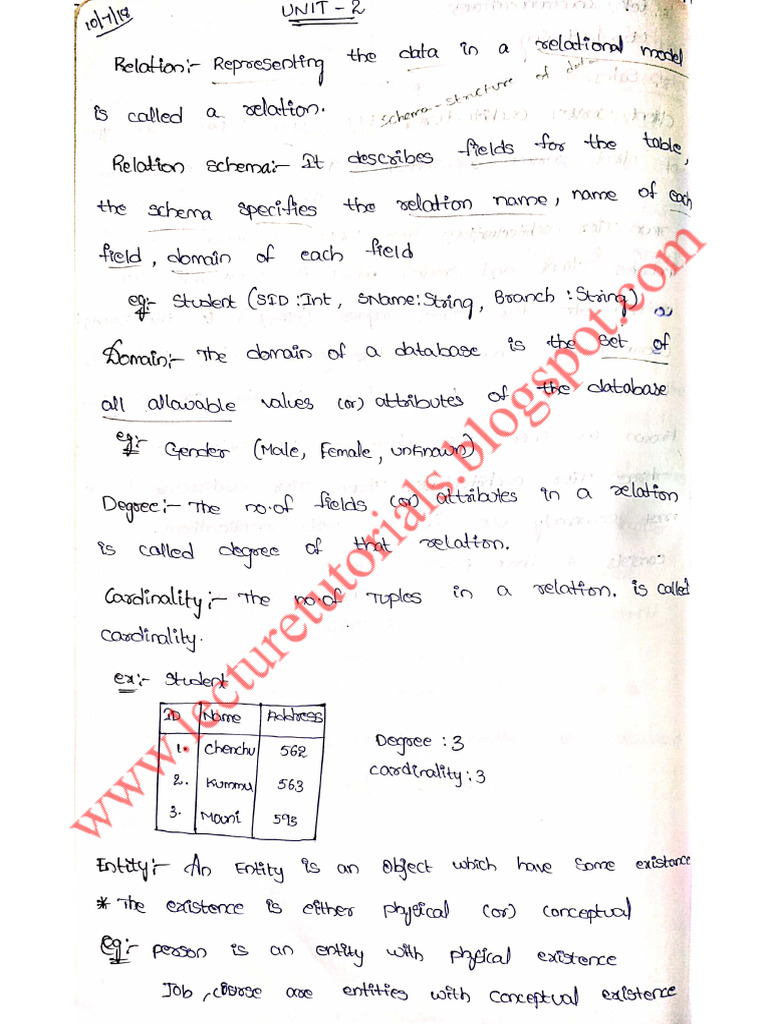 10/7/18
UNIT - 2
Relation:- Representing the data in a relational model
is called a relation.
schema - structure of data
Relation schema:- It describes fields for the table,
the schema specifies the relation name, name of each
field, domain of each field
eg:- Student (SID:Int, SName:String, Branch:String)
Domain:- The domain of a database is the set of
all allowable values (or) attributes of the database
eg:- Gender (Male, Female, unknown)
Degree:- The no.of fields (or) attributes in a relation
is called degree of that relation.
Cardinality:- The no.of Tuples in a relation. is called
cardinality.
ex:- Student
ID Name Address
1. Chenchu 562
2. Kummu 563
3. Mouni 593
Degree : 3
Cardinality : 3
Entity:- An Entity is an object which have some existance
* The existence is either phyical (or) conceptual
Eg:- person is an entity with phyical existence
Job, course are entities with conceptual existence
www.lecturetutorials.blogspot.com